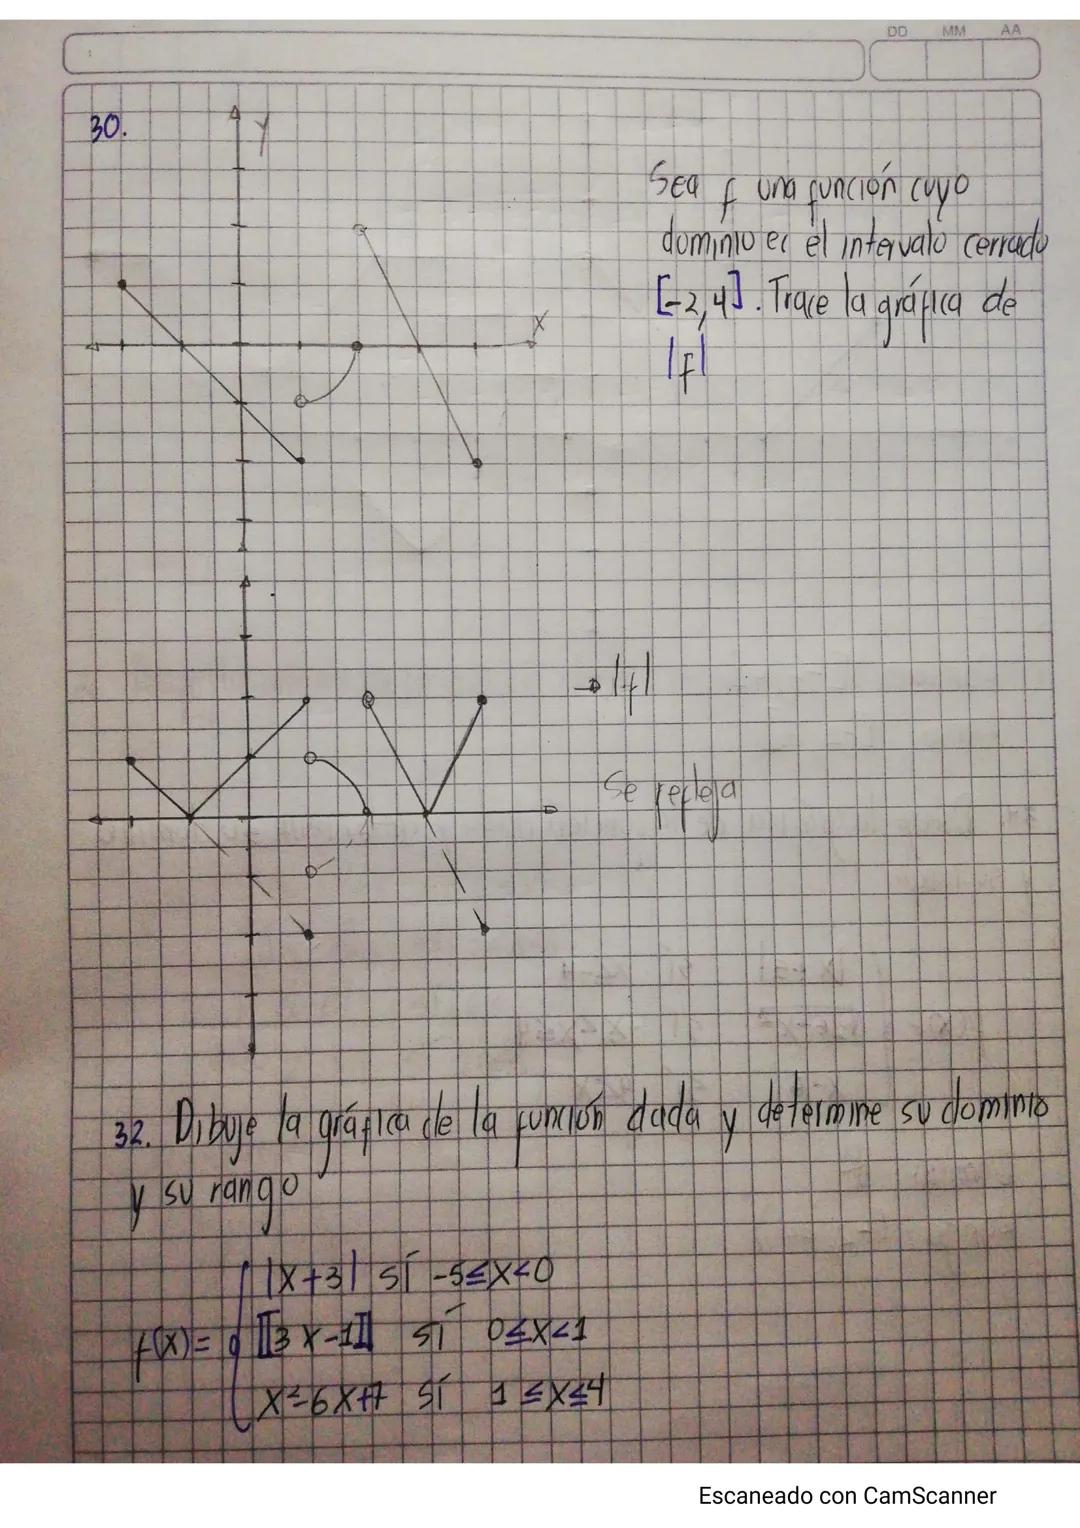 DD MM AA
30.
y
Sea f una función cuyo
dominio es el intervalo cerrado
[-2,4]. Trace la gráfica de
|f|
x
→ |f|
Se refleja
32. Dibuje la gráfica de la función dada y determine su dominio
y su rango
|x+3| sí -5≤x<0
f(x)= { [[3x-1]] sí 0≤x<1
x²-6x+7 sí 1≤x≤4
Escaneado con CamScanner